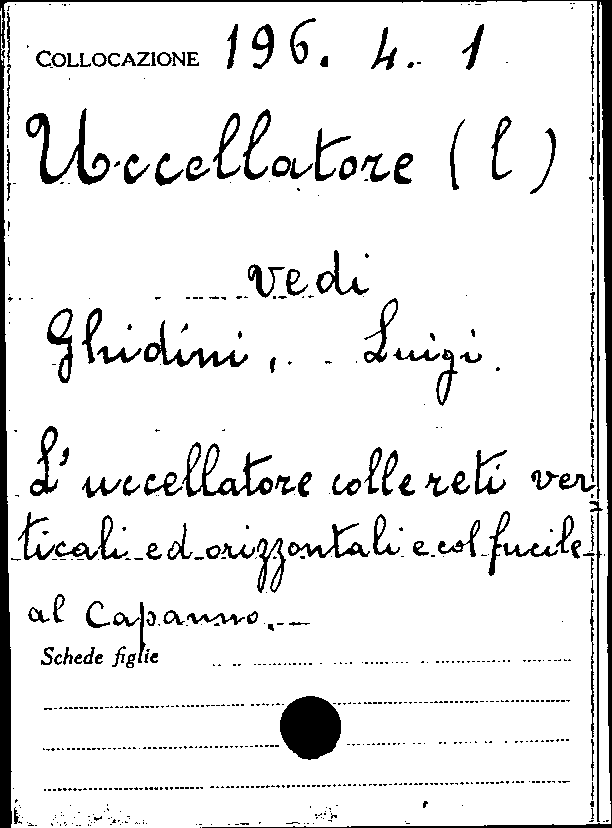 COLLOCAZIONE 196. 4. 1
Uccellatore (l)
vedi
Ghidini, Luigi.
L' uccellatore colle reti ver
ticali ed orizzontali e col fucile
al Capanno.
Schede figlie